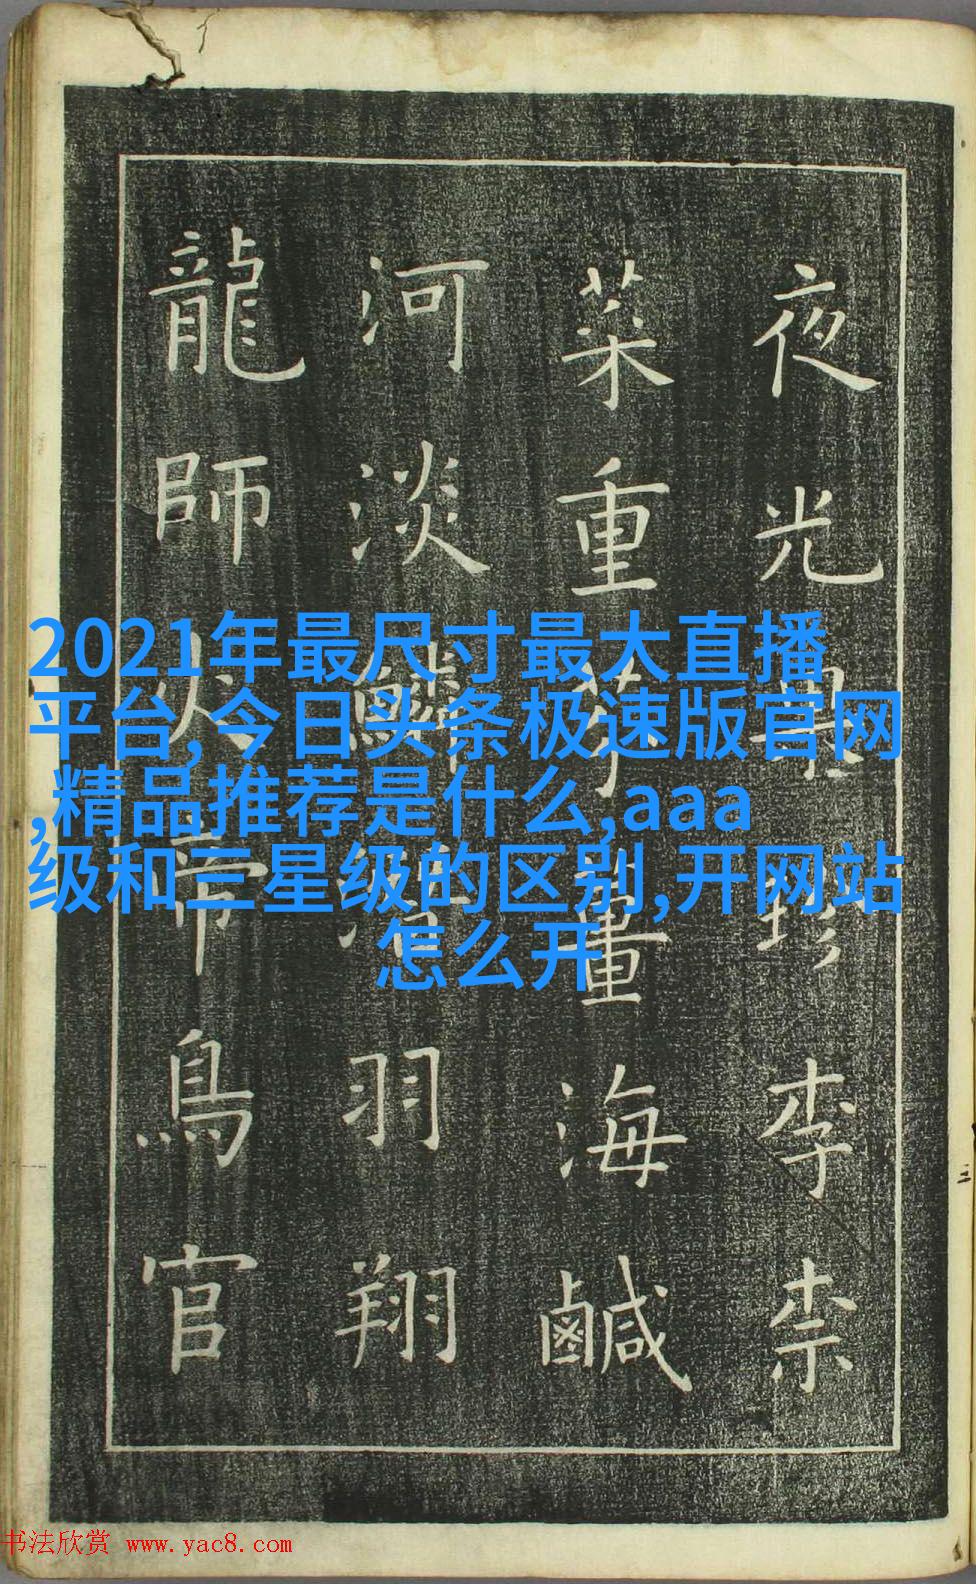 夜光果珍李柰
菜重芥薑海鹹
河淡鱗潛羽翔
龍師火帝鳥官
2021年最尺寸最大直播
平台,今日头条极速版官网
,精品推荐是什么,aaa
级和三星级的区别,开网站
怎么开
书法欣赏 www.yac8.com